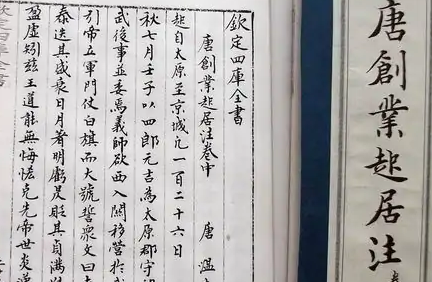 唐創業起居注
欽定四庫全書
唐創業起居注卷中 唐 溫
起自太原至京城凡一百二十六日
秋七月壬子以四郎元吉為太原郡守
武後事並委焉義師欲西入關移營於
引帝立軍門仗白旗而大號誓衆文曰
泰迭其盛衰日月著明虧昃貶其貞滿
盈虛矧茲王道能無悔恡克先帝世炎